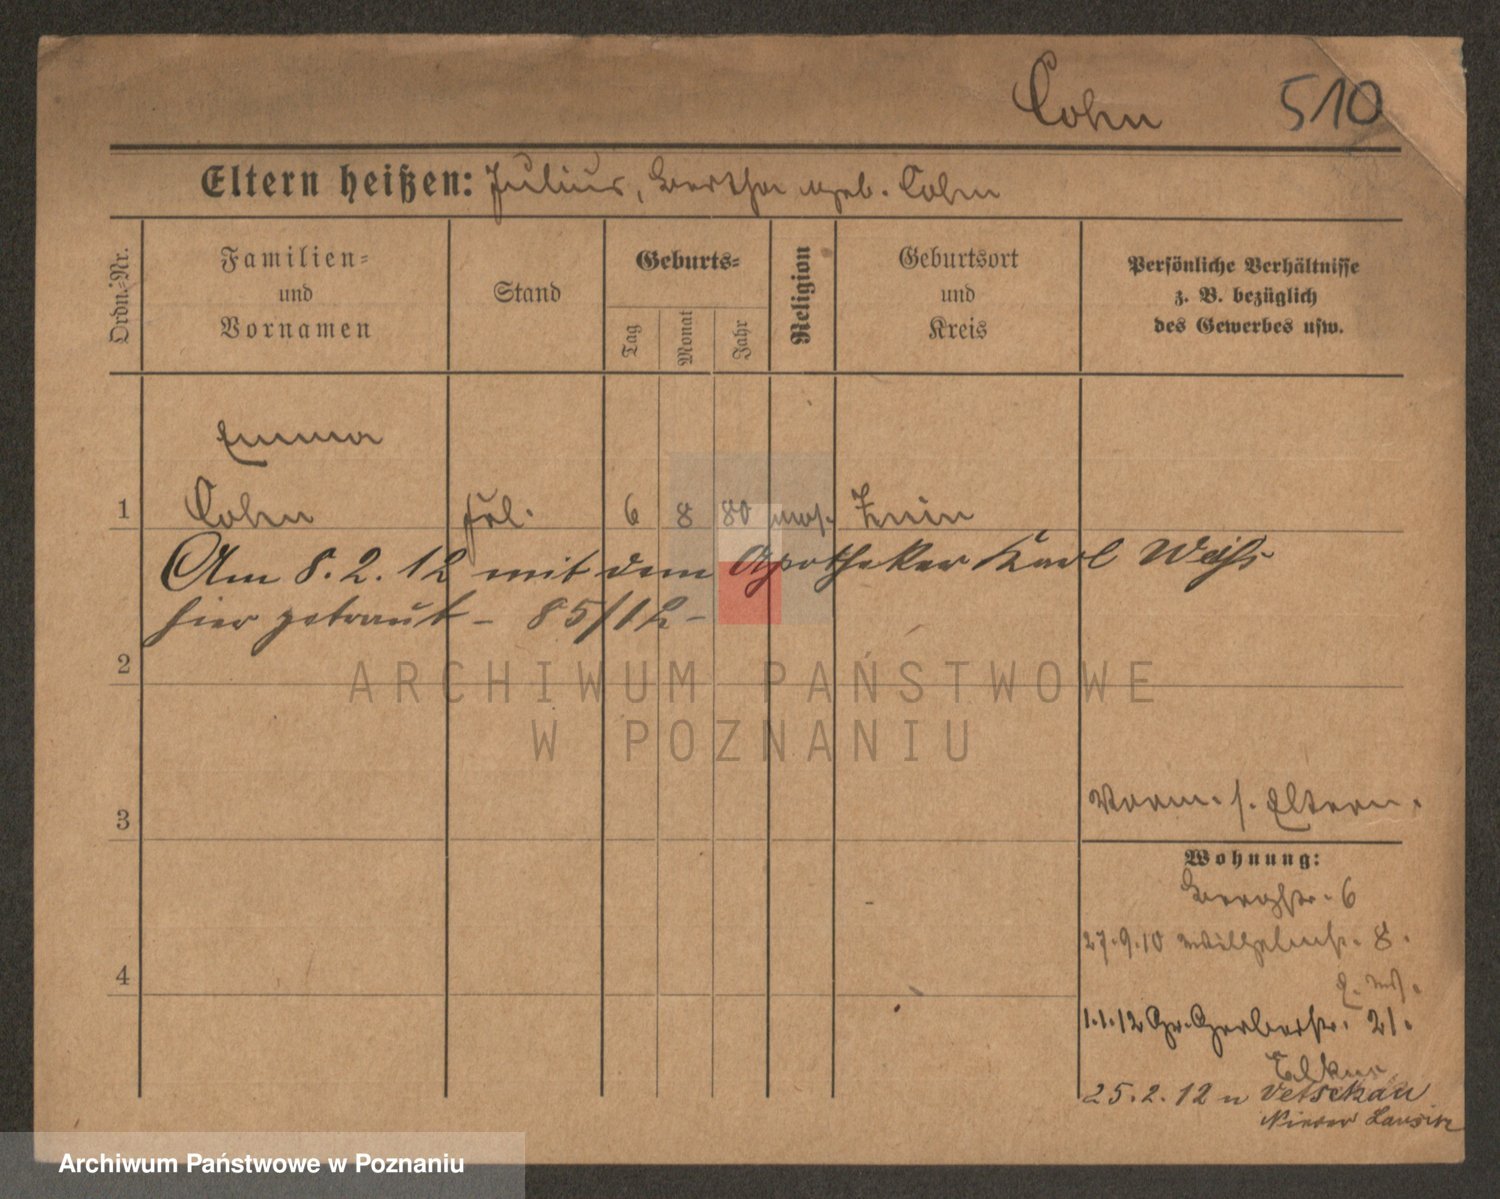 Cohn 510
Eltern heißen: Julius, Bertha geb. Cohn
Ordn.-Nr.
Familien-
und
Vornamen
Stand
Geburts-
Tag
Monat
Jahr
Religion
Geburtsort
und
Kreis
Persönliche Verhältnisse
z. B. bezüglich
des Gewerbes usw.
Emma
1 Cohn Frl. 6 8 80 mos. Znin
Am 8.2.12 mit dem Apotheker Karl Weiß
hier getraut - 85/12 -
2
ARCHIWUM PAŃSTWOWE
W POZNANIU
3
Verm. s. Eltern.
Wohnung:
Bergstr. 6
27.9.10 Wilhelmstr. 8.
4
1.1.12 Gr. Gerberstr. 21.
Elkus
25.2.12 n Vetschau
Nieder Lausitz
Archiwum Państwowe w Poznaniu